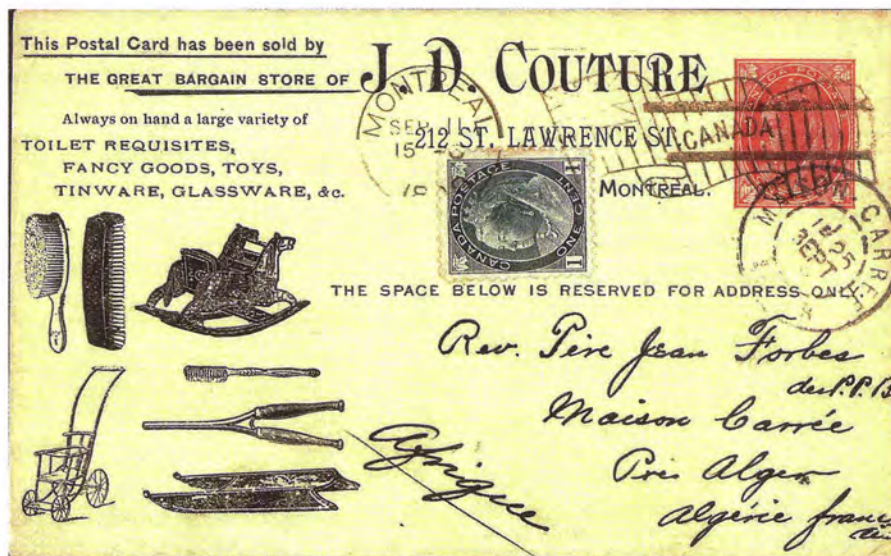 This Postal Card has been sold by
THE GREAT BARGAIN STORE OF J. D. COUTURE
Always on hand a large variety of
TOILET REQUISITES,
FANCY GOODS, TOYS,
TINWARE, GLASSWARE, &c.
212 ST. LAWRENCE ST.
MONTREAL.
MONTREAL
SEP 11
15
CANADA
CANADA POSTAGE
ONE CENT
1 1
CARREE
25
SEPT
THE SPACE BELOW IS RESERVED FOR ADDRESS ONLY.
Rev. Père Jean Forbes
des P.P. B
Maison Carrée
Près Alger
Algérie
Afrique